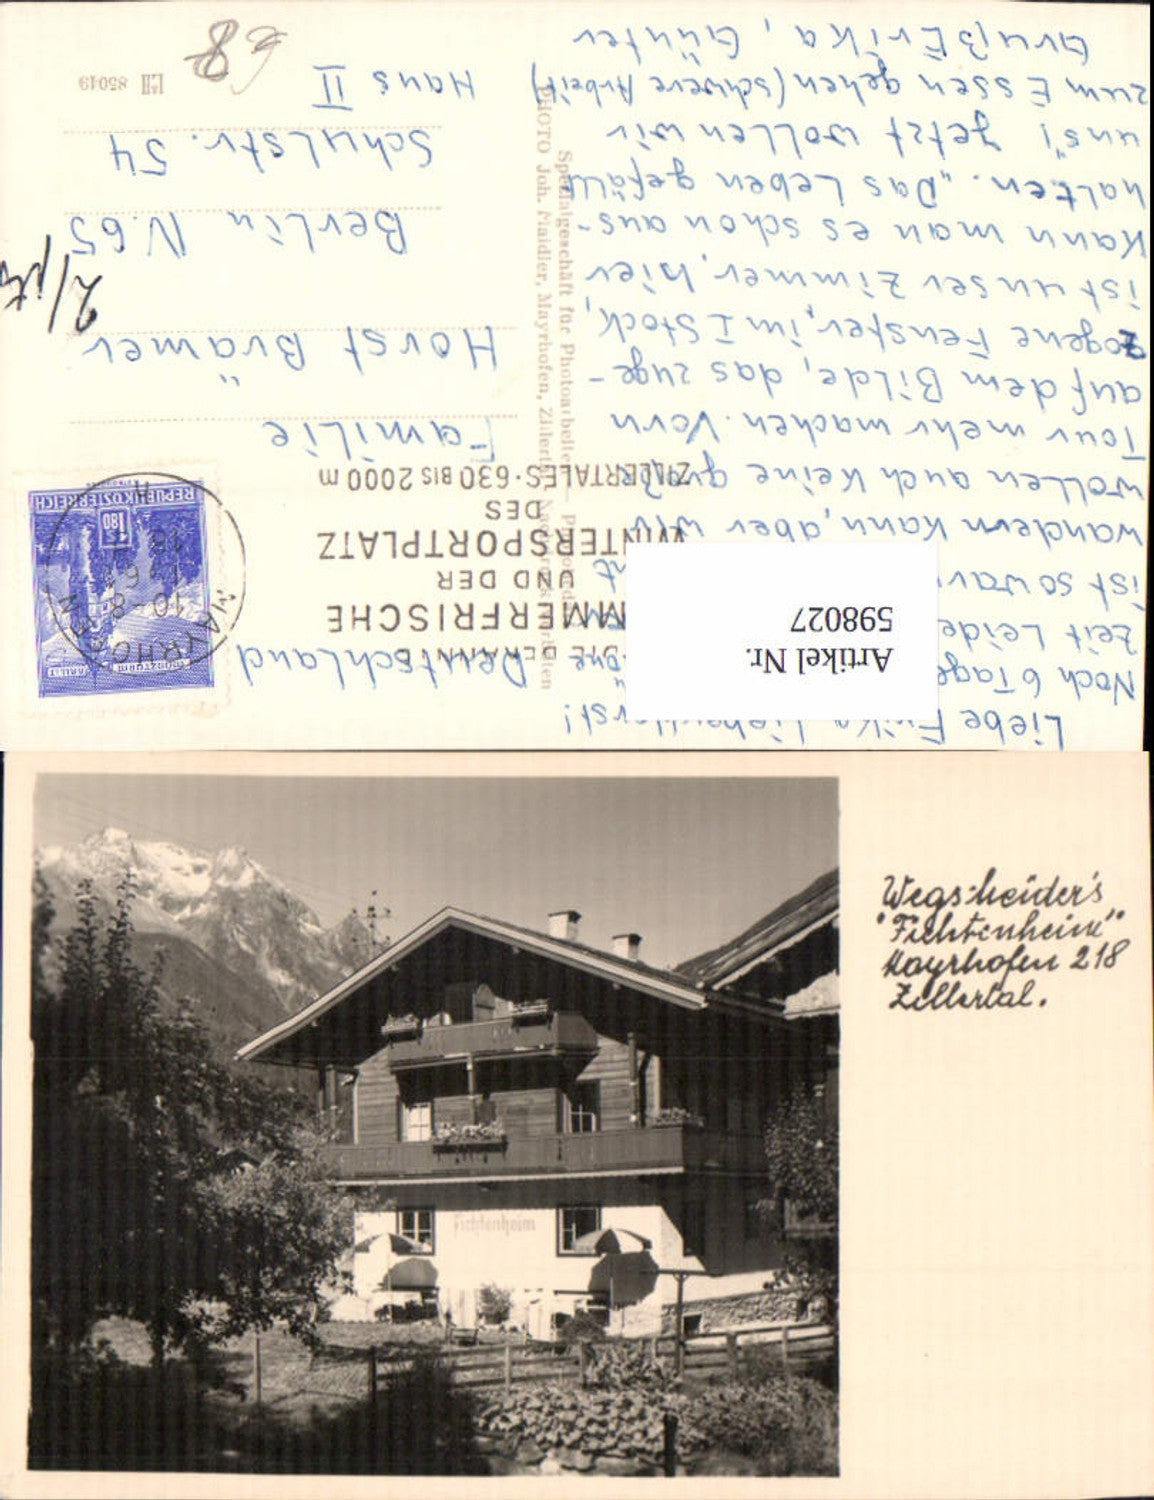 Liebe Erika Lieber Horst!
Noch 6 Tage
Zeit Leide
ist so war
wandern kann, aber wir
wollen auch keine große
Tour mehr machen. Vorn
auf dem Bilde, das zuge-
zogene Fenster, im I Stock,
ist unser Zimmer, hier
kann man es schon aus-
halten. „Das Leben gefällt
uns"! Jetzt wollen wir
zum Essen gehen (schwere Arbeit)
Gruß Erika, Günter
Artikel Nr.
598027
Spezialgeschäft für Photoarbeiten
PHOTO Joh. Maidler, Mayrhofen, Zillertal
DIE BEKANNTE
SOMMERFRISCHE
UND DER
WINTERSPORTPLATZ
DES
ZILLERTALES·630 BIS 2000 m
REPUBLIK ÖSTERREICH
1.80
MAYRHOFEN
Familie
Horst Brämer
Berlin N.65
Schulstr. 54
Haus II
Deutschland
68
85049
Wegscheider's
"Fichtenheim"
Mayrhofen 218
Zillertal.
Fichtenheim